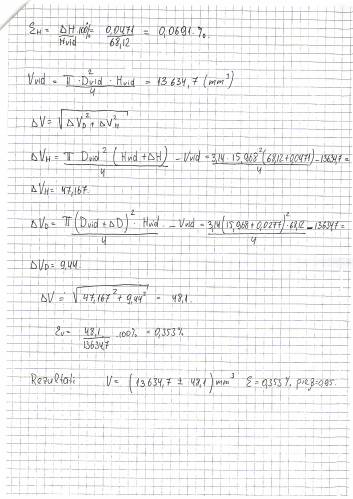 εH = ΔH/Hvid · 100% = 0,0471/68,12 = 0,0691 %.
Vvid = π · Dvid² · Hvid / 4 = 13 634,7 (mm³)
ΔV = √(ΔV_D² + ΔV_H²)
ΔV_H = π Dvid² (Hvid + ΔH) / 4 − Vvid = 3,14 · 15,968² (68,12 + 0,0471) / 4 − 13634,7 =
ΔV_H = 47,167.
ΔV_D = π (Dvid + ΔD)² · Hvid / 4 − Vvid = 3,14 (15,968 + 0,0277)² · 68,12 / 4 − 13634,7 =
ΔV_D = 9,44.
ΔV = √(47,167² + 9,44²) = 48,1.
εv = 48,1/13634,7 · 100% = 0,353%
Rezultāti V = (13 634,7 ± 48,1) mm³ ε = 0,353%, pie β=0,95.